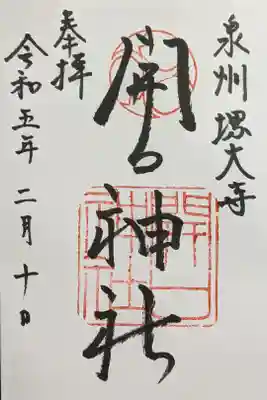 泉州堺大寺
開口神社
開口
神社
奉拝
令和五年二月十日